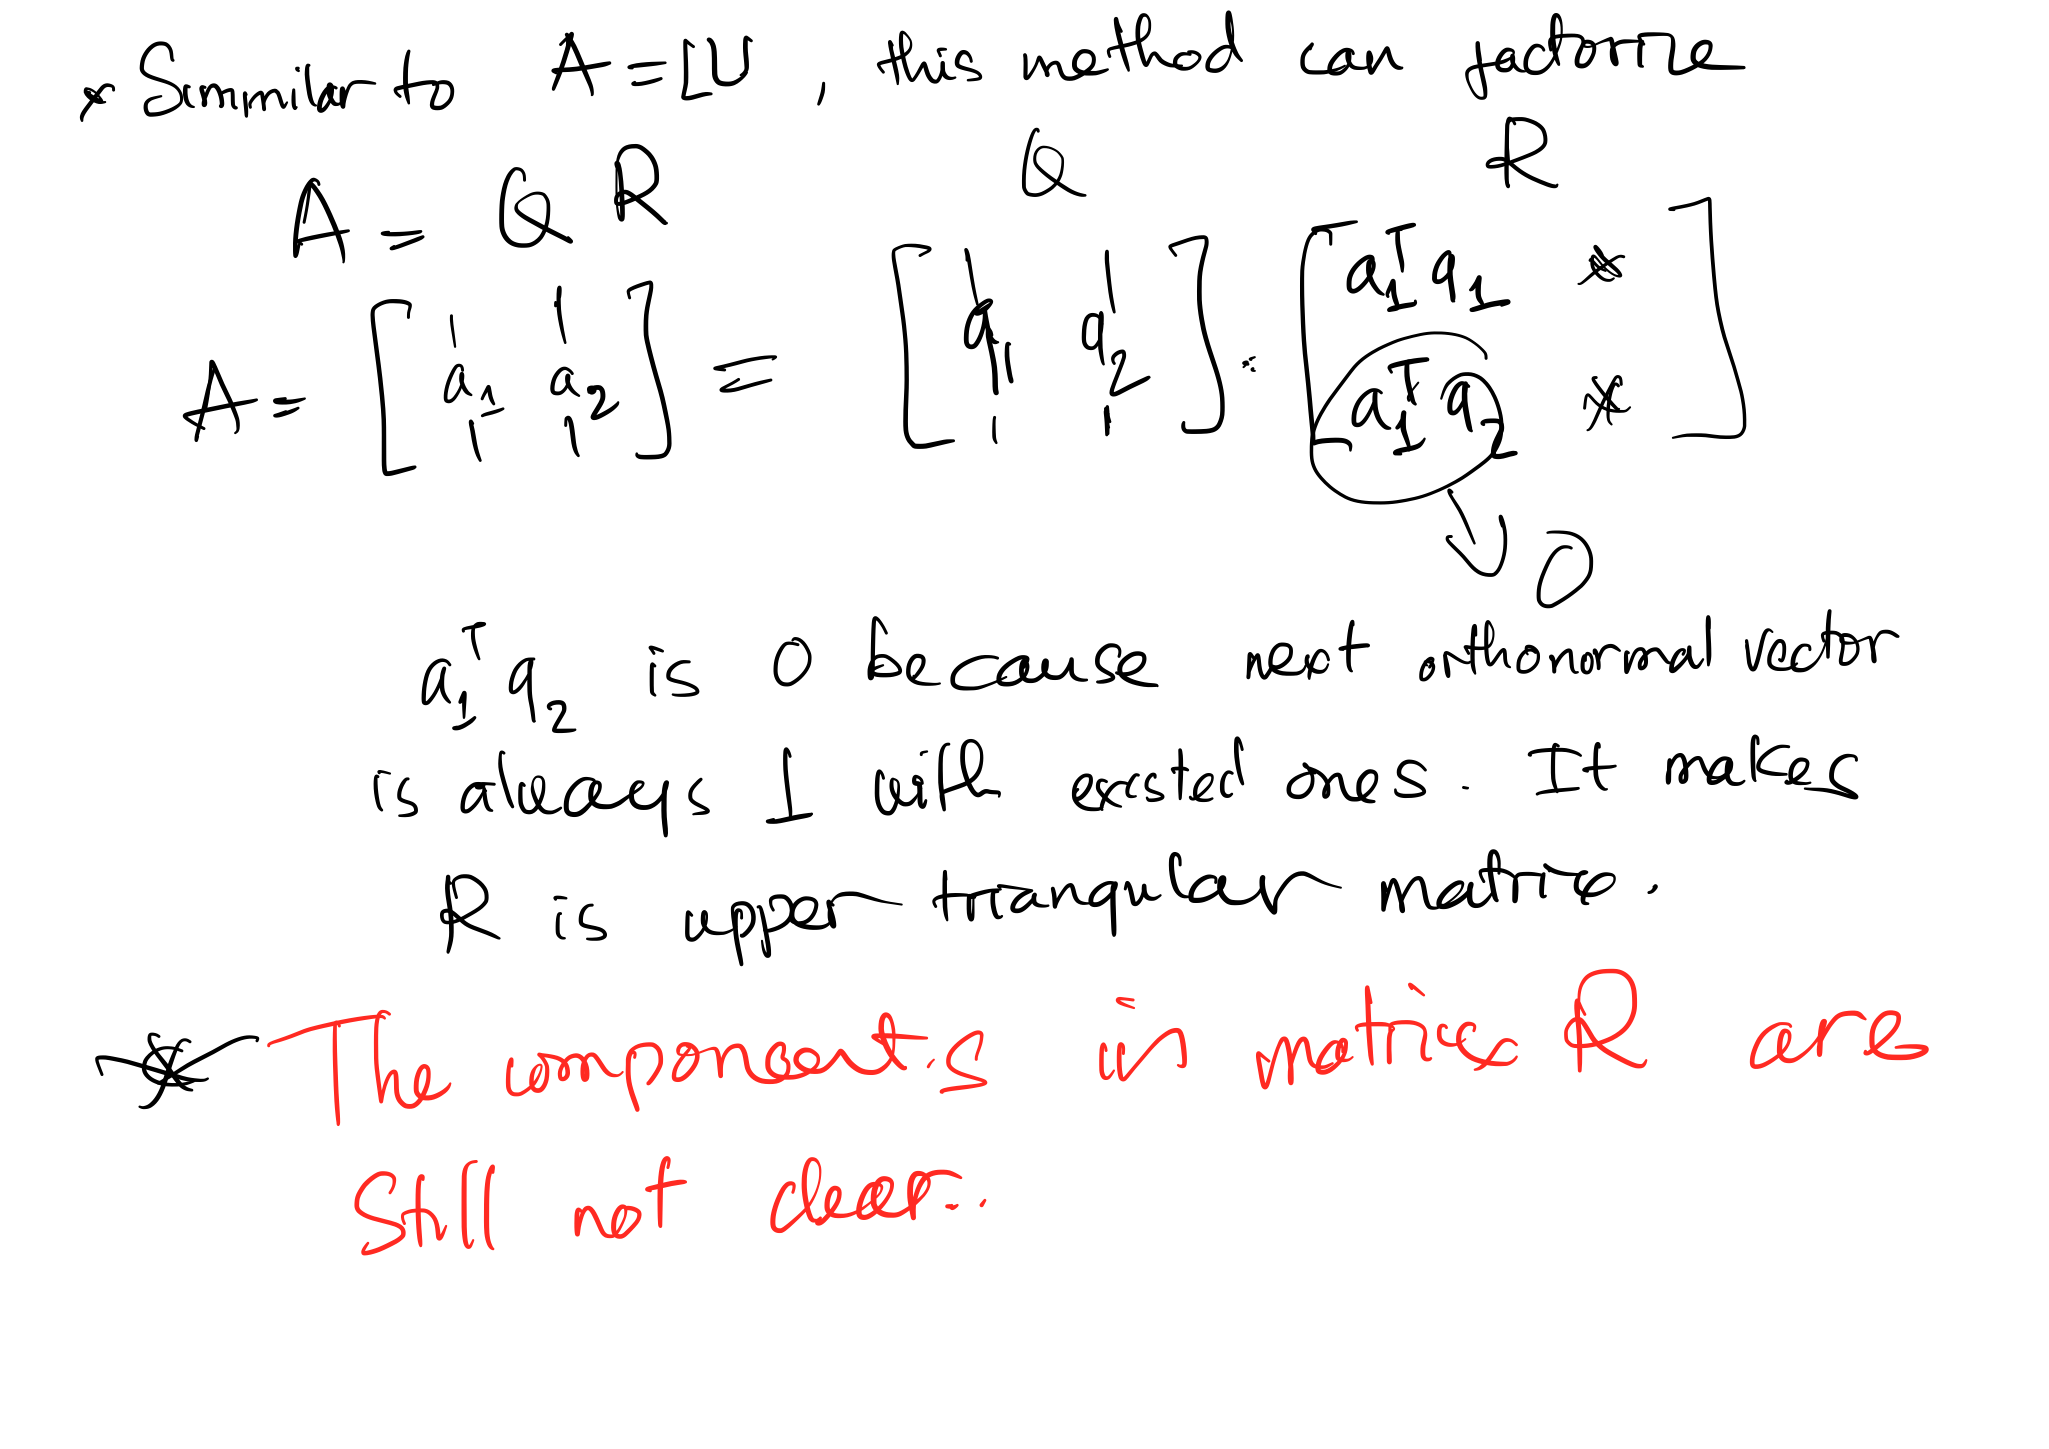 * Simmilar to A = LU, this method can factorize
A = Q R
Q R
A = [a₁ a₂] = [q₁ q₂] · [a₁ᵀq₁ *
a₁ᵀq₂ *]
0
a₁ᵀq₂ is 0 because next orthonormal vector
is always ⊥ with existed ones. It makes
R is upper triangular matrix.
* The components in matrix R are
Still not clear..